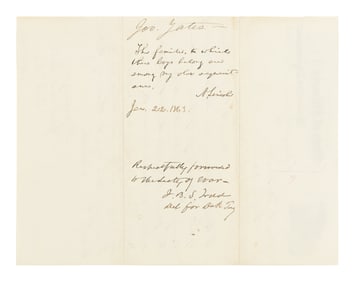 Gov. Yates
The families, to which
these boys belong are
among my old acquaint-
ances.
A. Lincoln
Jan. 22. 1863.
Respectfully forwarded
to the Secty of War
J. B. S. Todd
Del for Dak Try